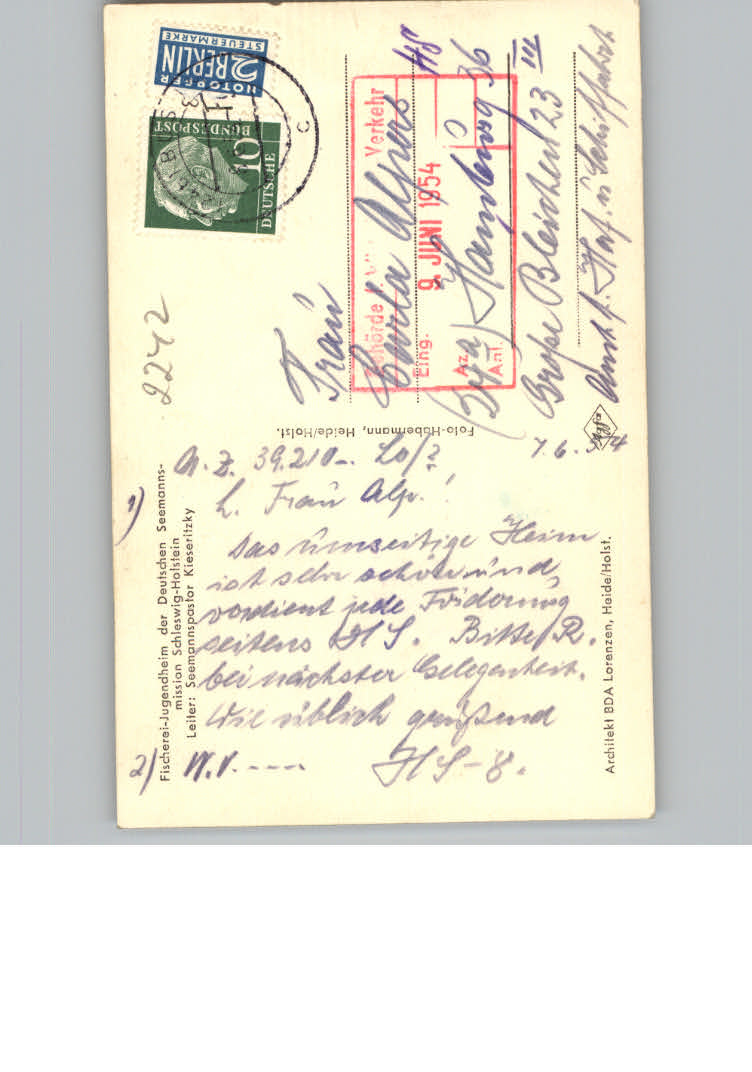 Fischerei-Jugendheim der Deutschen Seemanns-
mission Schleswig-Holstein
Leiter: Seemannspastor Kieseritzky
1) A. Z. 39.210-. Lo/2
L. Frau Alp.!
Das umseitige Heim
ist sehr schön und
verdient jede Förderung
seitens HS. Bitte R.
bei nächster Gelegenheit.
Wie üblich grüßend
HS-8.
2) W.V. ----
Architekt BDA Lorenzen, Heide/Holst.
Foto-Habermann, Heide/Holst.
7.6.54
Agfa
2242
NOTOPFER
2 BERLIN
STEUERMARKE
DEUTSCHE
10
BUNDESPOST
Behörde f. Verkehr
Eing. 9. JUNI 1954
Az.
Anl. 0
HS
Frau
Carla Alpers
(24a) Hamburg 36
Große Bleichen 23 III
Amt f. Haf. u Schiffahrt